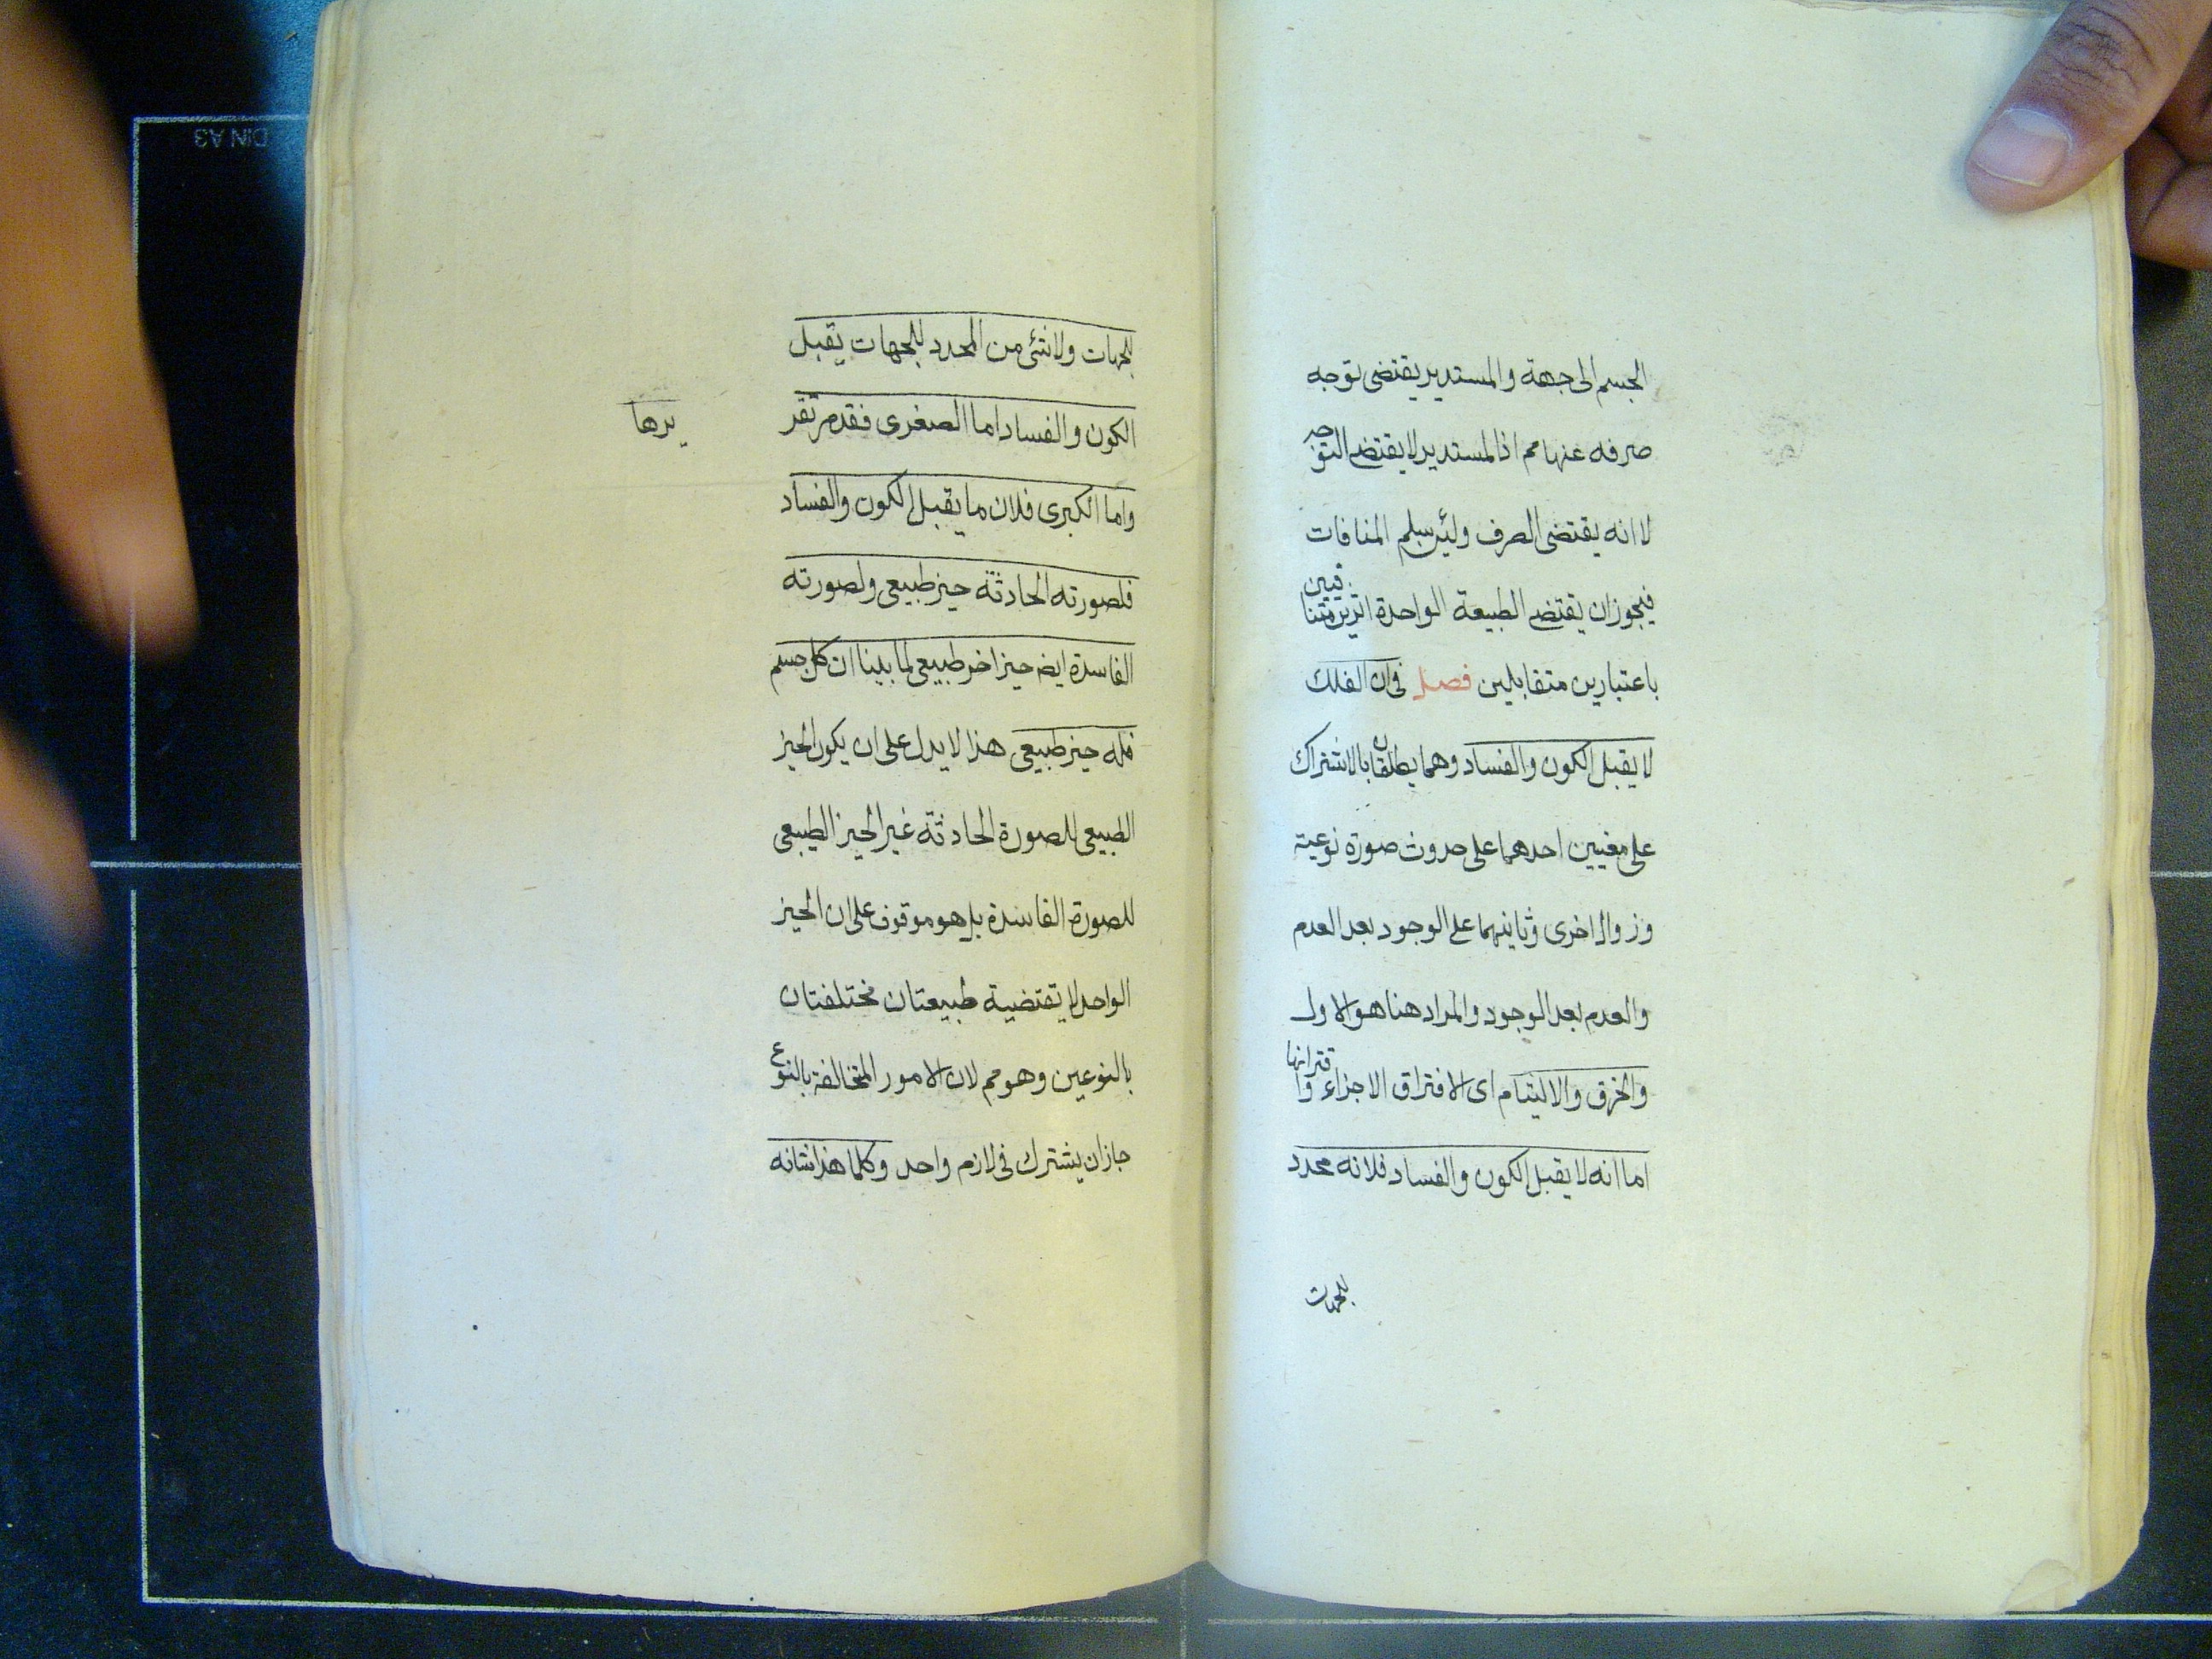 الجسم الى جهة والمستدير يقتضى توجه
صرفه عنها مم اذ المستدير لا يقتضى التوجه
لا انه يقتضى الصرف ولئن سلم المنافات
فيجوز ان يقتضى الطبيعة الواحدة اثرين متنافيين
باعتبارين متقابلين فصل فى ان الفلك
لا يقبل الكون والفساد وهما يطلقان بالاشتراك
على معنيين احدهما على حدوث صورة نوعية
وزوال اخرى وثانيهما على الوجود بعد العدم
والعدم بعد الوجود والمراد هنا هو الاول
والخرق والالتيام اى لافتراق الاجزاء واقترانها
اما انه لا يقبل الكون والفساد فلانه محدد
للجهات
للجهات ولا شئ من المحدد للجهات يقبل
الكون والفساد اما الصغرى فقد مر تقريرها
واما الكبرى فلان ما يقبل الكون والفساد
فلصورته الحادثة حيز طبيعى ولصورته
الفاسدة ايضه حيز اخر طبيعى لما بينا ان كل جسم
فله حيز طبيعى هذا لا يدل على ان يكون الحيز
الطبيعى للصورة الحادثة غير الحيز الطبيعى
للصورة الفاسدة بل هو موقوف على ان الحيز
الواحد لا يقتضية طبيعتان مختلفتان
بالنوعين وهو مم لان الامور المتخالفة بالنوع
جاز ان يشترك فى لازم واحد وكلما هذا شانه